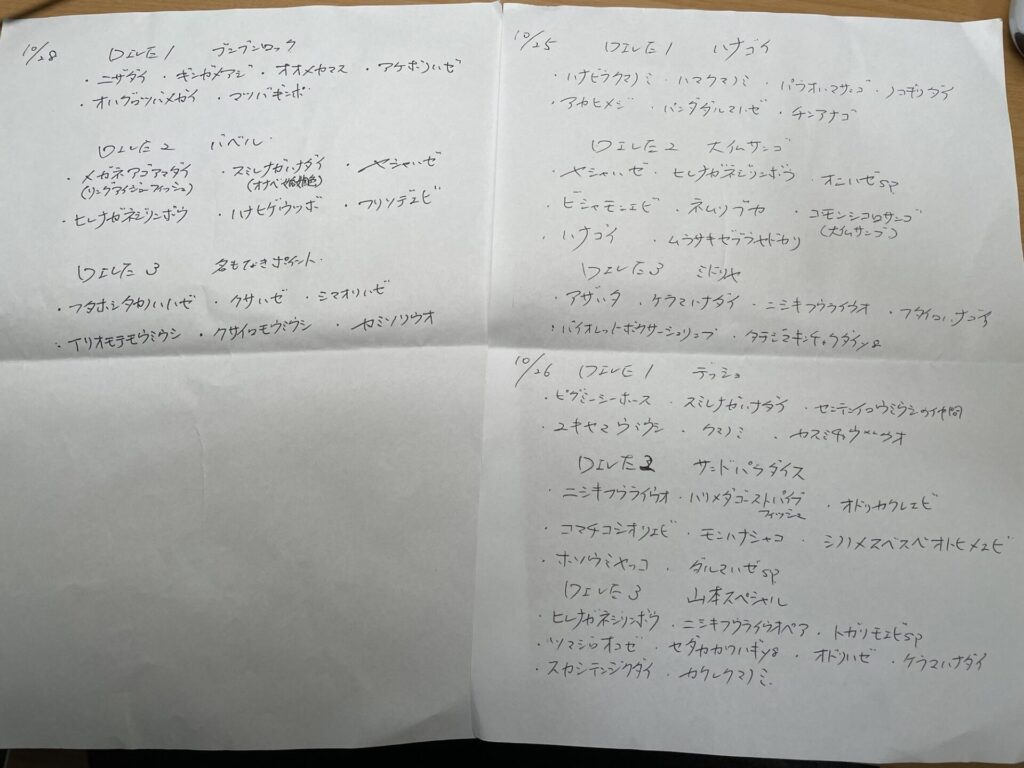 10/28 DIVE 1 ブンブンロック
・ニザダイ ・ギンガメアジ ・オオメカマス ・アケボノハゼ
・オハグロツバメガイ ・マツバギンポ
DIVE 2 バベル
・メガネアゴアマダイ ・スミレナガハナダイ ・ヤシャハゼ
(リングアイジョーフィッシュ) (オナベ婚姻色)
・ヒレナガネジリンボウ ・ハナヒゲウツボ ・フリソデエビ
DIVE 3 名もなきポイント
・フタホシタカノハハゼ ・クサハゼ ・シマオリハゼ
・イリオモテモウミウシ ・クサイロモウミウシ ・カミソリウオ
10/25 DIVE 1 ハナゴイ
・ハナビラクマノミ ・ハマクマノミ ・パラオハマサンゴ ・ノコギリダイ
・アカヒメジ ・パンダダルマハゼ ・チンアナゴ
DIVE 2 大イムサンゴ
・ヤシャハゼ ・ヒレナガネジリンボウ ・オニハゼsp
・ビシャモンエビ ・ネムリブカ ・コモンシコロサンゴ
(大イムサンゴ)
・ハナゴイ ・ムラサキゼブラヤドカリ
DIVE 3 ミドリヤ
・アザハタ ・ケラマハナダイ ・ニシキフウライウオ ・フタイロハナゴイ
・バイオレットボクサーシュリンプ ・タテジマキンチャクダイyg
10/26 DIVE 1 デッシュ
・ピグミーシーホース ・スミレナガハナダイ ・センテンイロウミウシの仲間
・ユキヤマウミウシ ・クマノミ ・カスミチョウチョウウオ
DIVE 2 サンドパラダイス
・ニシキフウライウオ ・ハリメダゴーストパイプ ・オドリカクレエビ
フィッシュ
・コマチコシオリエビ ・モンハナシャコ ・シノノメスベスベオトヒメエビ
・ホソウミヤッコ ・ダルマハゼsp
DIVE 3 山本スペシャル
・ヒレナガネジリンボウ ・ニシキフウライウオペア ・トガリモエビsp
・ツマジロオコゼ ・セダカカワハギyg ・オドリハゼ ・ケラマハナダイ
・スカシテンジクダイ ・カクレクマノミ